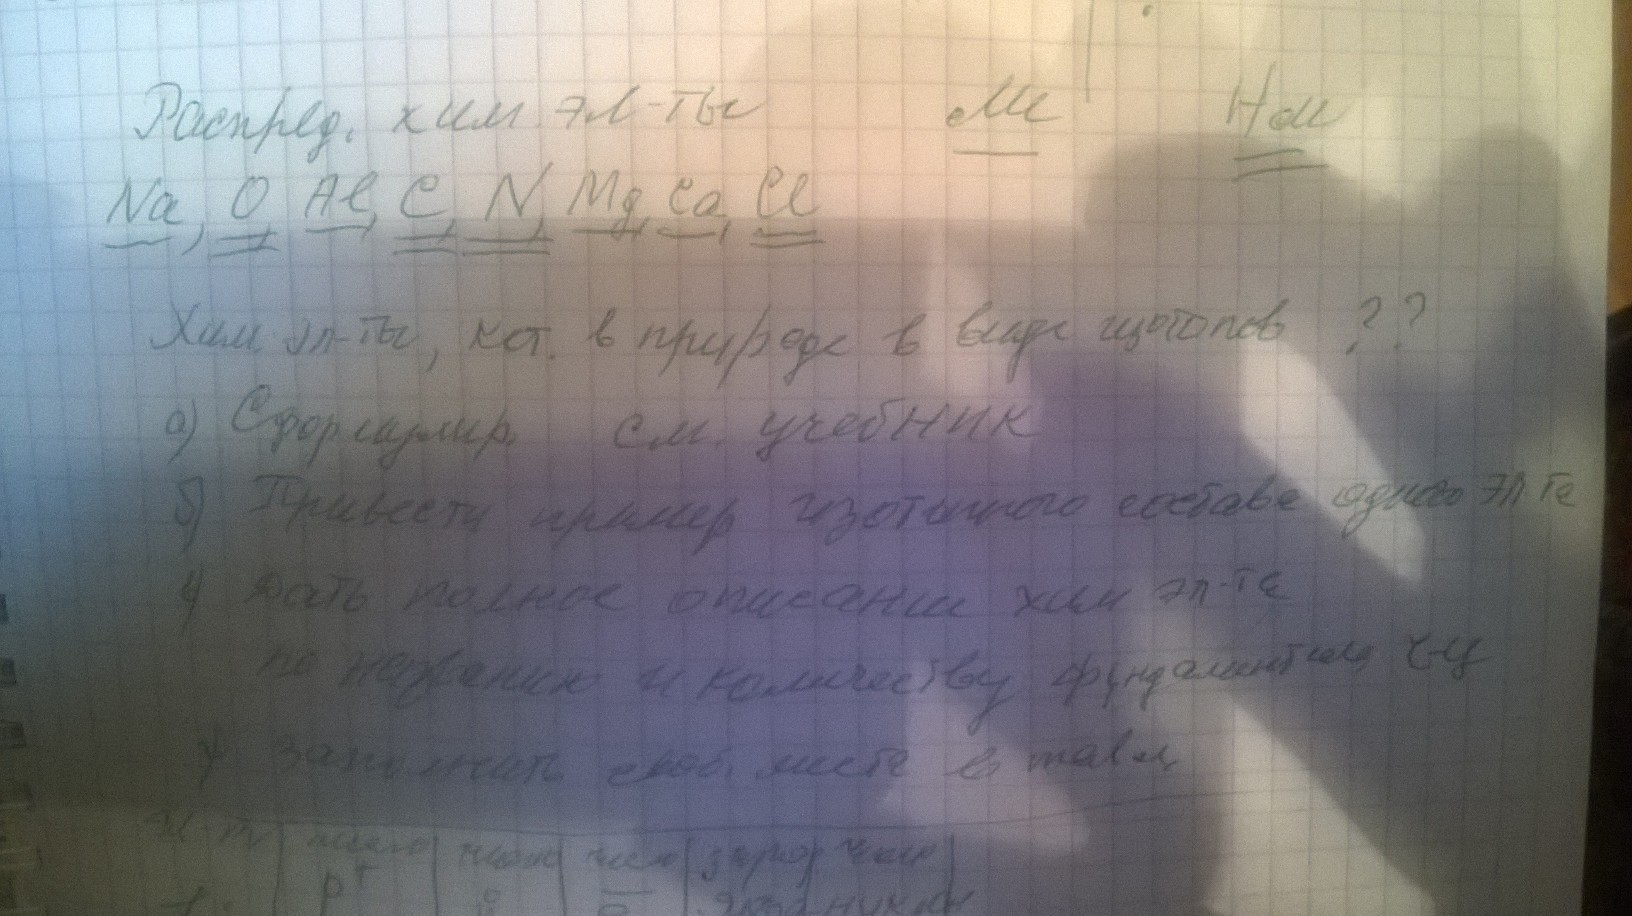 Распред. хим эл-ты Ме НеМ
Na, O, Al, C, N, Mg, Ca, Cl
Хим эл-ты, кот. в природе в виде изотопов ??
а) Сформулир. см. учебник
б) Привести пример изотопного состава одного эл-та
дать полное описание хим эл-та
по названию и количеству фундаментал. ч-ц
заполнить своб. места в табл.
эл-т число число число заряд число
p⁺ ē ядра нуклон